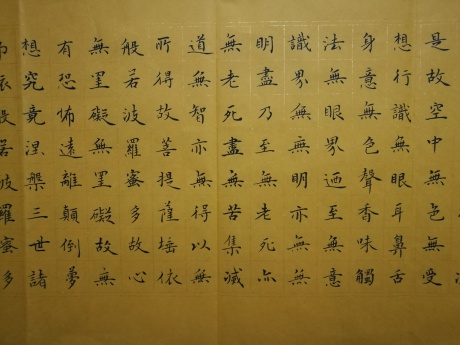 是故空中無色無受
想行識無眼耳鼻舌
身意無色聲香味觸
法無眼界迺至無意
識界無無明亦無無
明盡乃至無老死亦
無老死盡無苦集滅
道無智亦無得以無
所得故菩提薩埵依
般若波羅蜜多故心
無罣礙無罣礙故無
有恐怖遠離顛倒夢
想究竟涅槃三世諸
依般若波羅蜜多